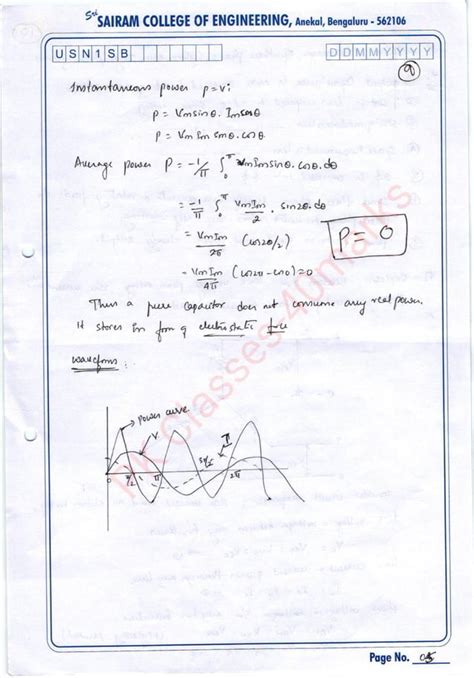 Sri SAIRAM COLLEGE OF ENGINEERING, Anekal, Bengaluru - 562106
U S N 1 S B
D D M M Y Y Y Y
9
Instantaneous power p = vi
P = Vm sinθ. Im cosθ
P = Vm Im sinθ. cosθ
Average power P = -1/π ∫₀^π Vm Im sinθ. cosθ. dθ
= -1/π ∫₀^π VmIm/2 . sin2θ. dθ
= VmIm/2π (cos2θ/2)
P = 0
= VmIm/4π (cos2π - cos0) = 0
Thus a pure capacitor does not consume any real power.
It stores in form of electrostatic
waveforms :
Power curve
V
0 π/2 π 2π
HK Classes-40marks
Page No. 05